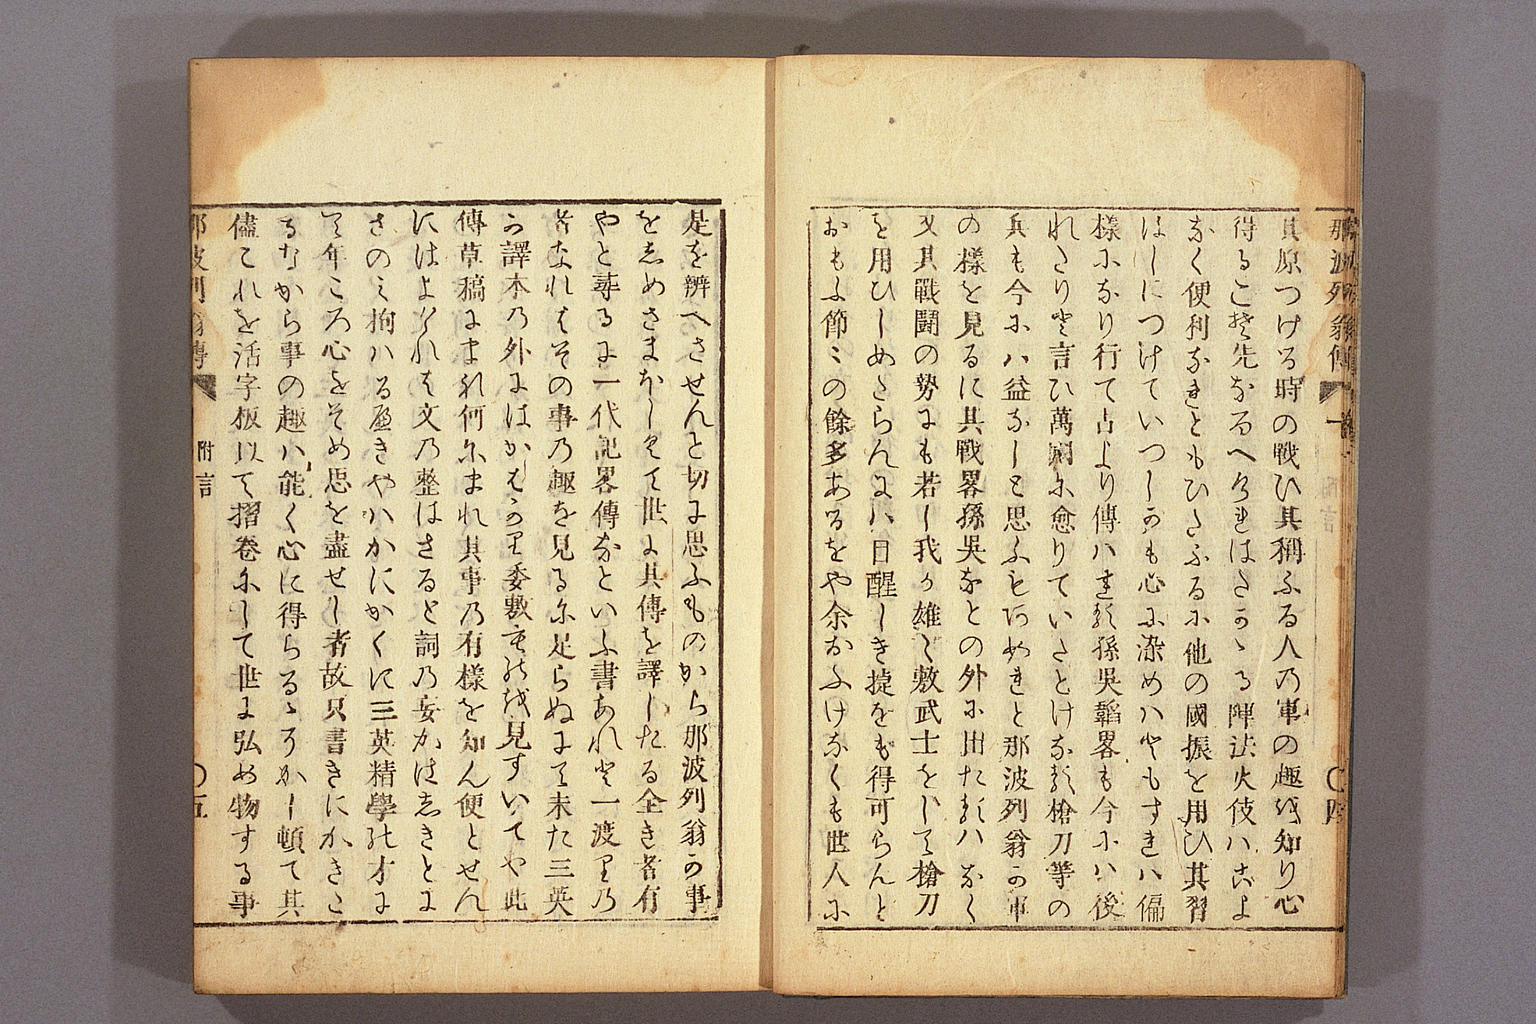 那波列翁傳
其原つける時の戦ひ其稱ふる人乃軍の趣越知り心
得るこそ先なるへけれはさかゝる陣法火伎ハ古よ
なく便利なれともひたふるに他の國振を用ひ其習
はしにつけていつしかも心に染めハともすれハ偏
様になり行て古より傳ハれる孫吳韜畧も今にハ後
れたりと言ひ萬闕に愈りていたとけなき槍刀等の
兵も今にハ益なしと思ふもあめれと那波列翁か軍
の様を見るに其戰畧孫吳なとの外に出たるハなく
又其戰闘の勢にも若し我か雄々敷武士をして槍刀
を用ひしめたらんにハ目醒しき㨗をも得可らんと
おもふ節々の餘多あるをや余おふけなくも世人に
〇四
是を辨へさせんと切に思ふものから那波列翁か事
をしめさまほしくて世に其傳を譯したる全き者有
やと尋るに一代記畧傳なといふ書あれと一渡りの
者なれはその事乃趣を見るに足らぬにて未た三英
か譯本乃外にはかはかり委敷を越見すいてや此
傳草稿にまれ何にまれ其事乃有様を知ん便とせん
にはよけれは文乃整はさると詞乃妄かはしきとに
さのみ拘ハる屋きやハかにかくに三英精學の才に
て年ころ心をそめ思を盡せし者故只書きにかきた
るなから事の趣ハ能く心に得らるゝそかし頓て其
儘これを活字板以て摺卷にして世に弘め物する事
那波列翁傳 附言 〇五